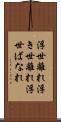 浮世離れ浮
き世離れ浮
世ばなれ